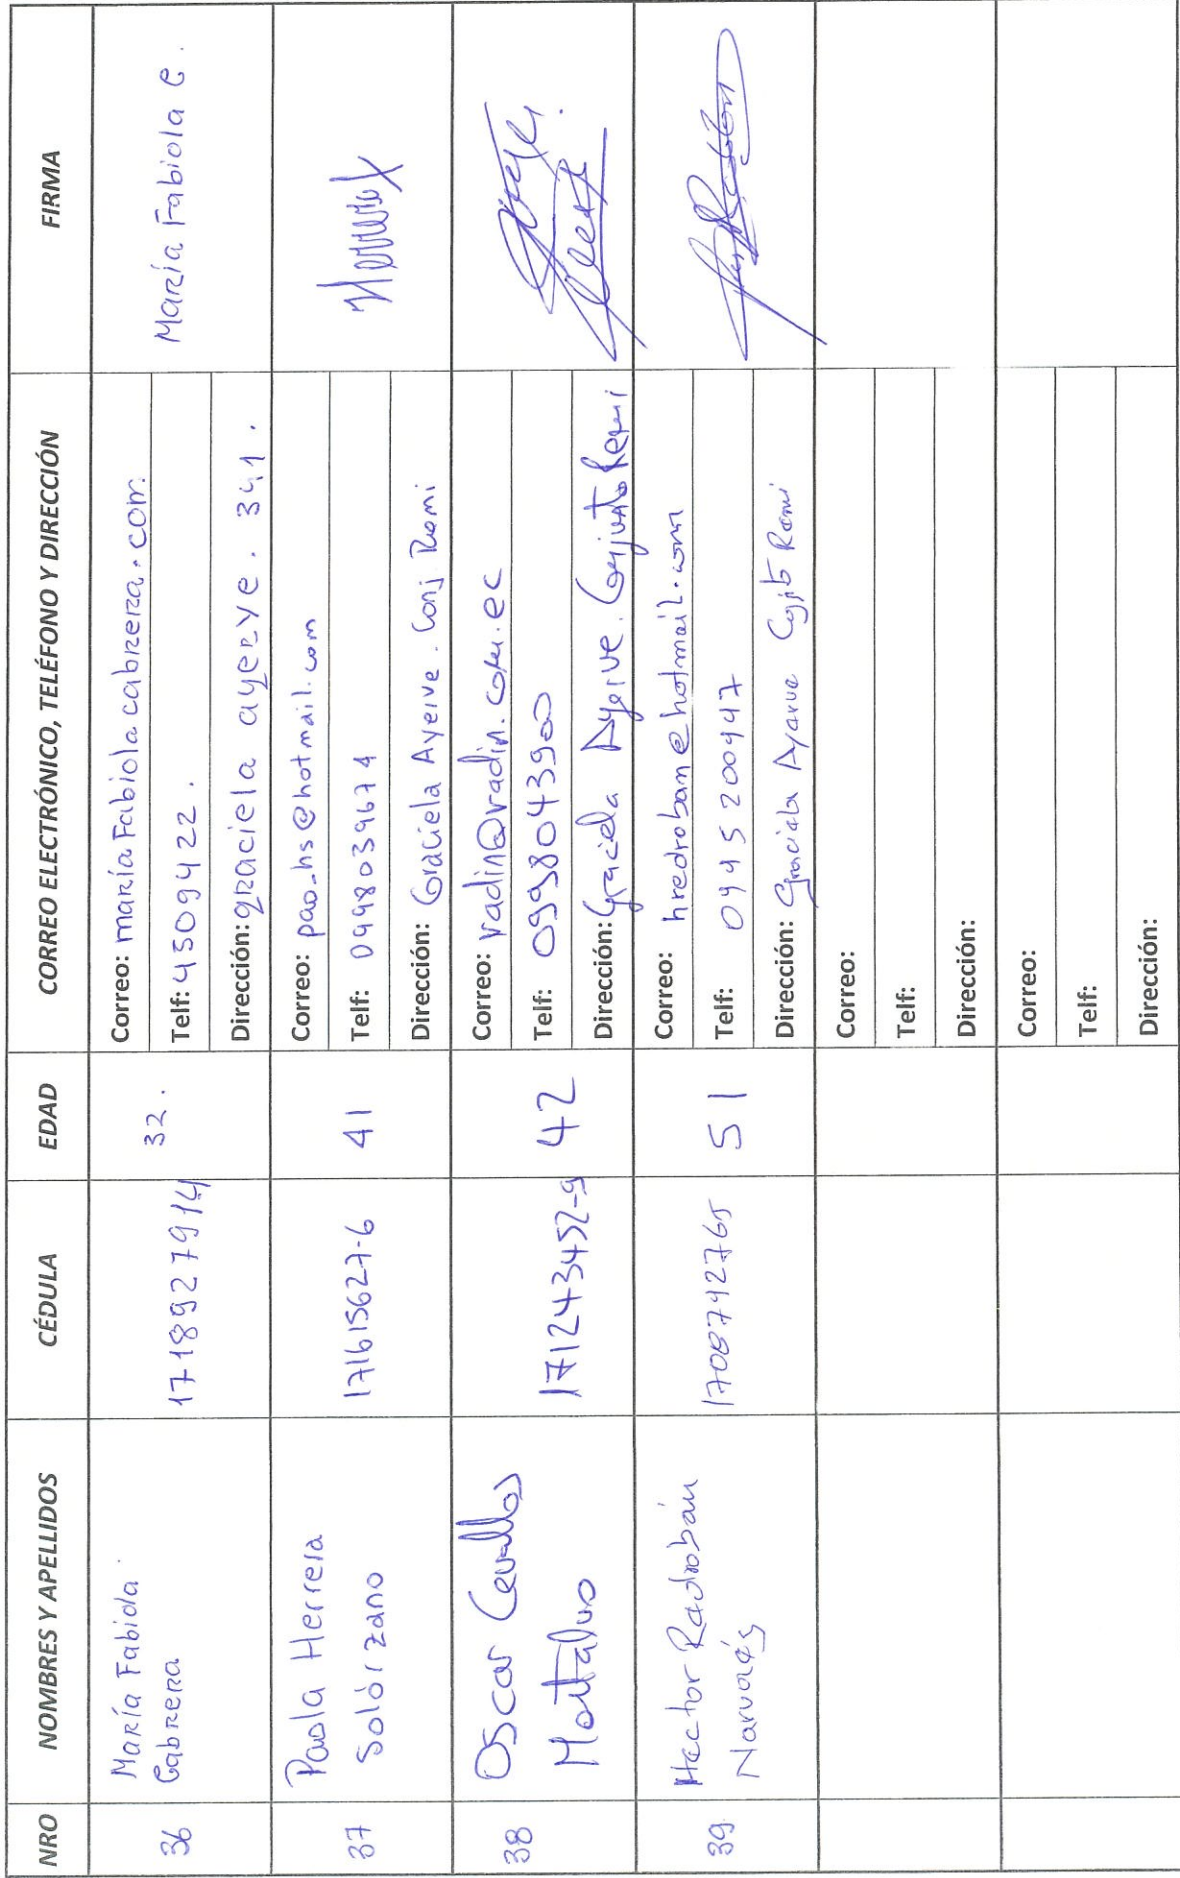 NRO NOMBRES Y APELLIDOS CÉDULA EDAD CORREO ELECTRÓNICO, TELÉFONO Y DIRECCIÓN FIRMA
36 María Fabiola Cabrera 1718927914 32.
Correo: maría Fabiola cabrera.com
Telf: 4509422.
Dirección: graciela ayerve. 341.
María Fabiola C.
37 Paola Herrera Solórzano 171615627-6 41
Correo: pao_hs@hotmail.com
Telf: 0998039674
Dirección: Graciela Ayerve. Conj. Remi
38 Oscar Cevallos Montalvo 171243452-9 42
Correo: vadin@vadin.com.ec
Telf: 0998043900
Dirección: Graciela Ayerve. Conjunto Remi
39 Hector Redrobán Narvaés 1708742765 51
Correo: hredroban@hotmail.com
Telf: 0995200947
Dirección: Graciela Ayarve Cojto Remi
Correo:
Telf:
Dirección:
Correo:
Telf:
Dirección: